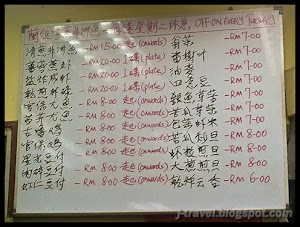 非洲魚 逢星期二休息, OFF ON EVERY TUESDAY
清蒸非洲魚 - RM 15.00 起 (onwards) 翁菜 - RM 7-00
RM 20.00 1碟 (plate) 番樹叶 - RM 7-00
RM 20.00 1碟 (plate) 油麦 - RM 7-00
RM 20.00 1碟 (plate) 四季豆 - RM 7-00
官保尤鱼 - RM 8.00 起 (onwards) 銀魚莧菜 - RM 7-00
尤鱼 - RM 8.00 起 (onwards) 苦瓜 - RM 7-00
鸡 - RM 8.00 起 (onwards) RM 7-00
官保鸡 - RM 8.00 起 (onwards) 苦瓜煎旦 - RM 8-00
星光豆付 - RM 8.00 起 (onwards) 煎旦 - RM 8-00
肉碎豆付 - RM 8.00 起 (onwards) 大葱煎旦 - RM 8-00
虾仁豆付 - RM 8.00 起 (onwards) 乾炸云吞 - RM 6-00
j-travel.blogspot.com